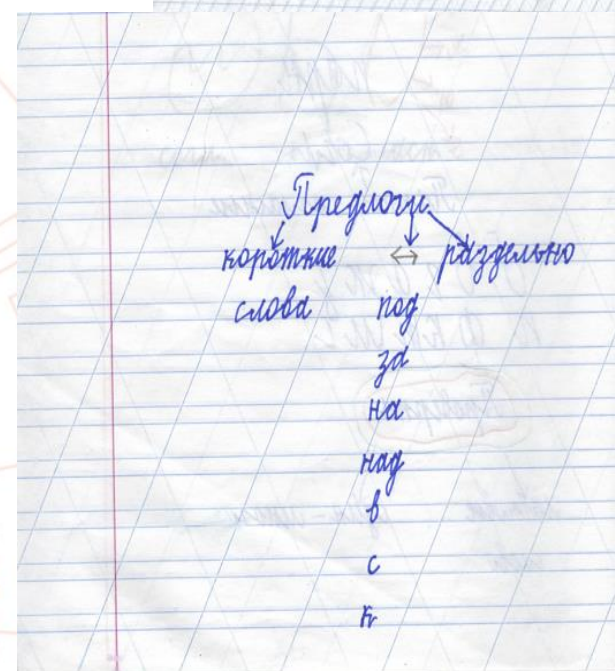 Предлоги
короткие ↔ раздельно
слова под
за
на
над
в
с
к